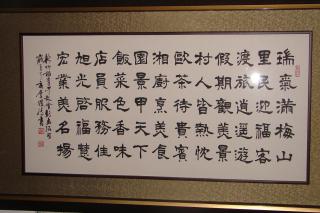 瑞氣滿梅山
里民迎福客
渡旅逍遥游
假期觀美景
村人皆熱忱
歐茶待貴賓
湘廚烹美食
園景甲天下
飯菜色香味
店員服務佳
旭光啓福慧
宏業美名揚